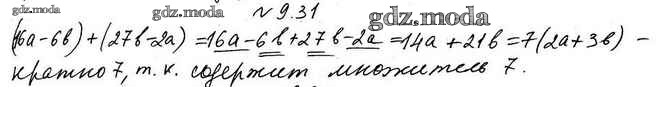 gdz.moda
№ 9.31
gdz.moda
(16a-6b)+(27b-2a)=16a-6b+27b-2a=14a+21b=7(2a+3b) -
gdz.moda
кратно 7, т.к. содержит множитель 7.